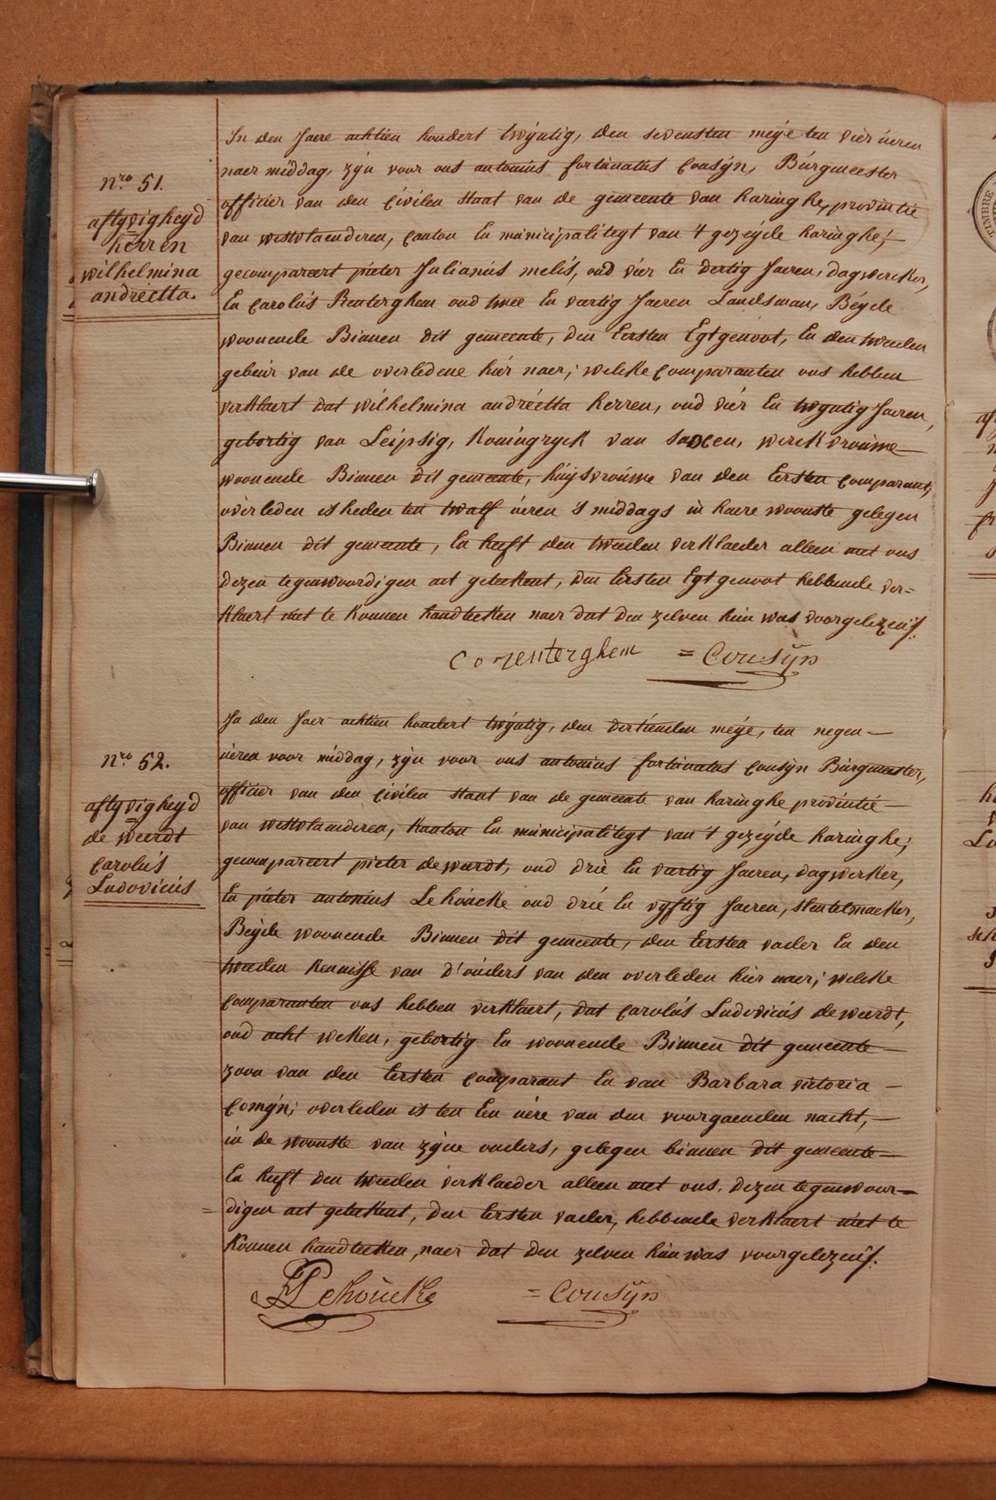 In den Jaere achtien hondert twÿntig, den sevensten meÿe ten vier úeren
naer middag, zÿn voor ons antoniús fortúnatús Coúsÿn, Búrgmeester
officier van den Civilen Staat van de gemeente van haringhe, provintie
van westvlaenderen, Canton En múnicipaliteÿt van 't gezeÿde haringhe;—
gecompareert pieter Júlianús melis, oud vier En dertig Jaeren, dagwercker,
En Carolús Benterghem oud twee En vertig Jaeren Landsman, Béÿde
woonende Binnen dit gemeente, den Eersten Egtgenoot, En den tweeden
gebeúr van de overledene hier naer; welcke Comparanten ons hebben
verklaert dat wilhelmina andréetta herren, oud vier En twÿntig Jaeren,
gebortig van Leipsig, Koningrÿck van Saxen, werckvrouwe—
woonende Binnen dit gemeente, húÿsvroúwe van den Eersten Comparant,
overleden is heden ten twalf úeren 's middags in haere woonste gelegen
Binnen dit gemeente, En heeft den tweeden verklaerder alleen met ons
dezen tegenwoordigen act geteekent, den Eersten Egtgenoot hebbende ver=
klaert niet te konnen handteeken naer dat den zelven hem was voorgelezen./.
= Coúsÿn
nro 51.
aflÿvigheÿd
herren
wilhelmina
andréetta.
In den Jaer achtien hondert twÿntig, den dertienden meÿe, ten negen—
úeren voor middag, zÿn voor ons antonius fortúnatus Coúsÿn Búrgmeester,
officier van den Civilen Staat van de gemeente van haringhe provintie—
van westvlaenderen, Kanton En múnicipaliteÿt van 't gezeÿde haringhe;
gecompareert pieter de weerdt, oud drie En veertig Jaeren, dagwerker,
En pieter antoniús Lehoúcke oud drie En vÿftig Jaeren, sleutelmaeker,
Beÿde woonende Binnen dit gemeente, den Eersten vader En den
tweeden Kennisse van d'oúders van den overleden hier naer; welcke
Comparanten ons hebben verklaert, dat Carolús Ludovicús de weerdt,
oud acht weken, gebortig En woonende Binnen dit gemeente—
zoon van den Eersten Comparant En van Barbara victoria—
Comÿn; overleden is ten Een úere van den voorgaenden nacht,—
in de woonste van zÿne ouders, gelegen binnen dit gemeente—
En heeft den tweeden verklaerder alleen met ons, dezen tegenwoor=
digen act geteekent, den Eersten vader, hebbende verklaert niet te
Konnen handteeken, naer dat den zelven hem was voorgelezen./.
Lehoúcke = Coúsÿn
nro 52.
aflÿvigheÿd
de weerdt
Carolús
Ludovicús